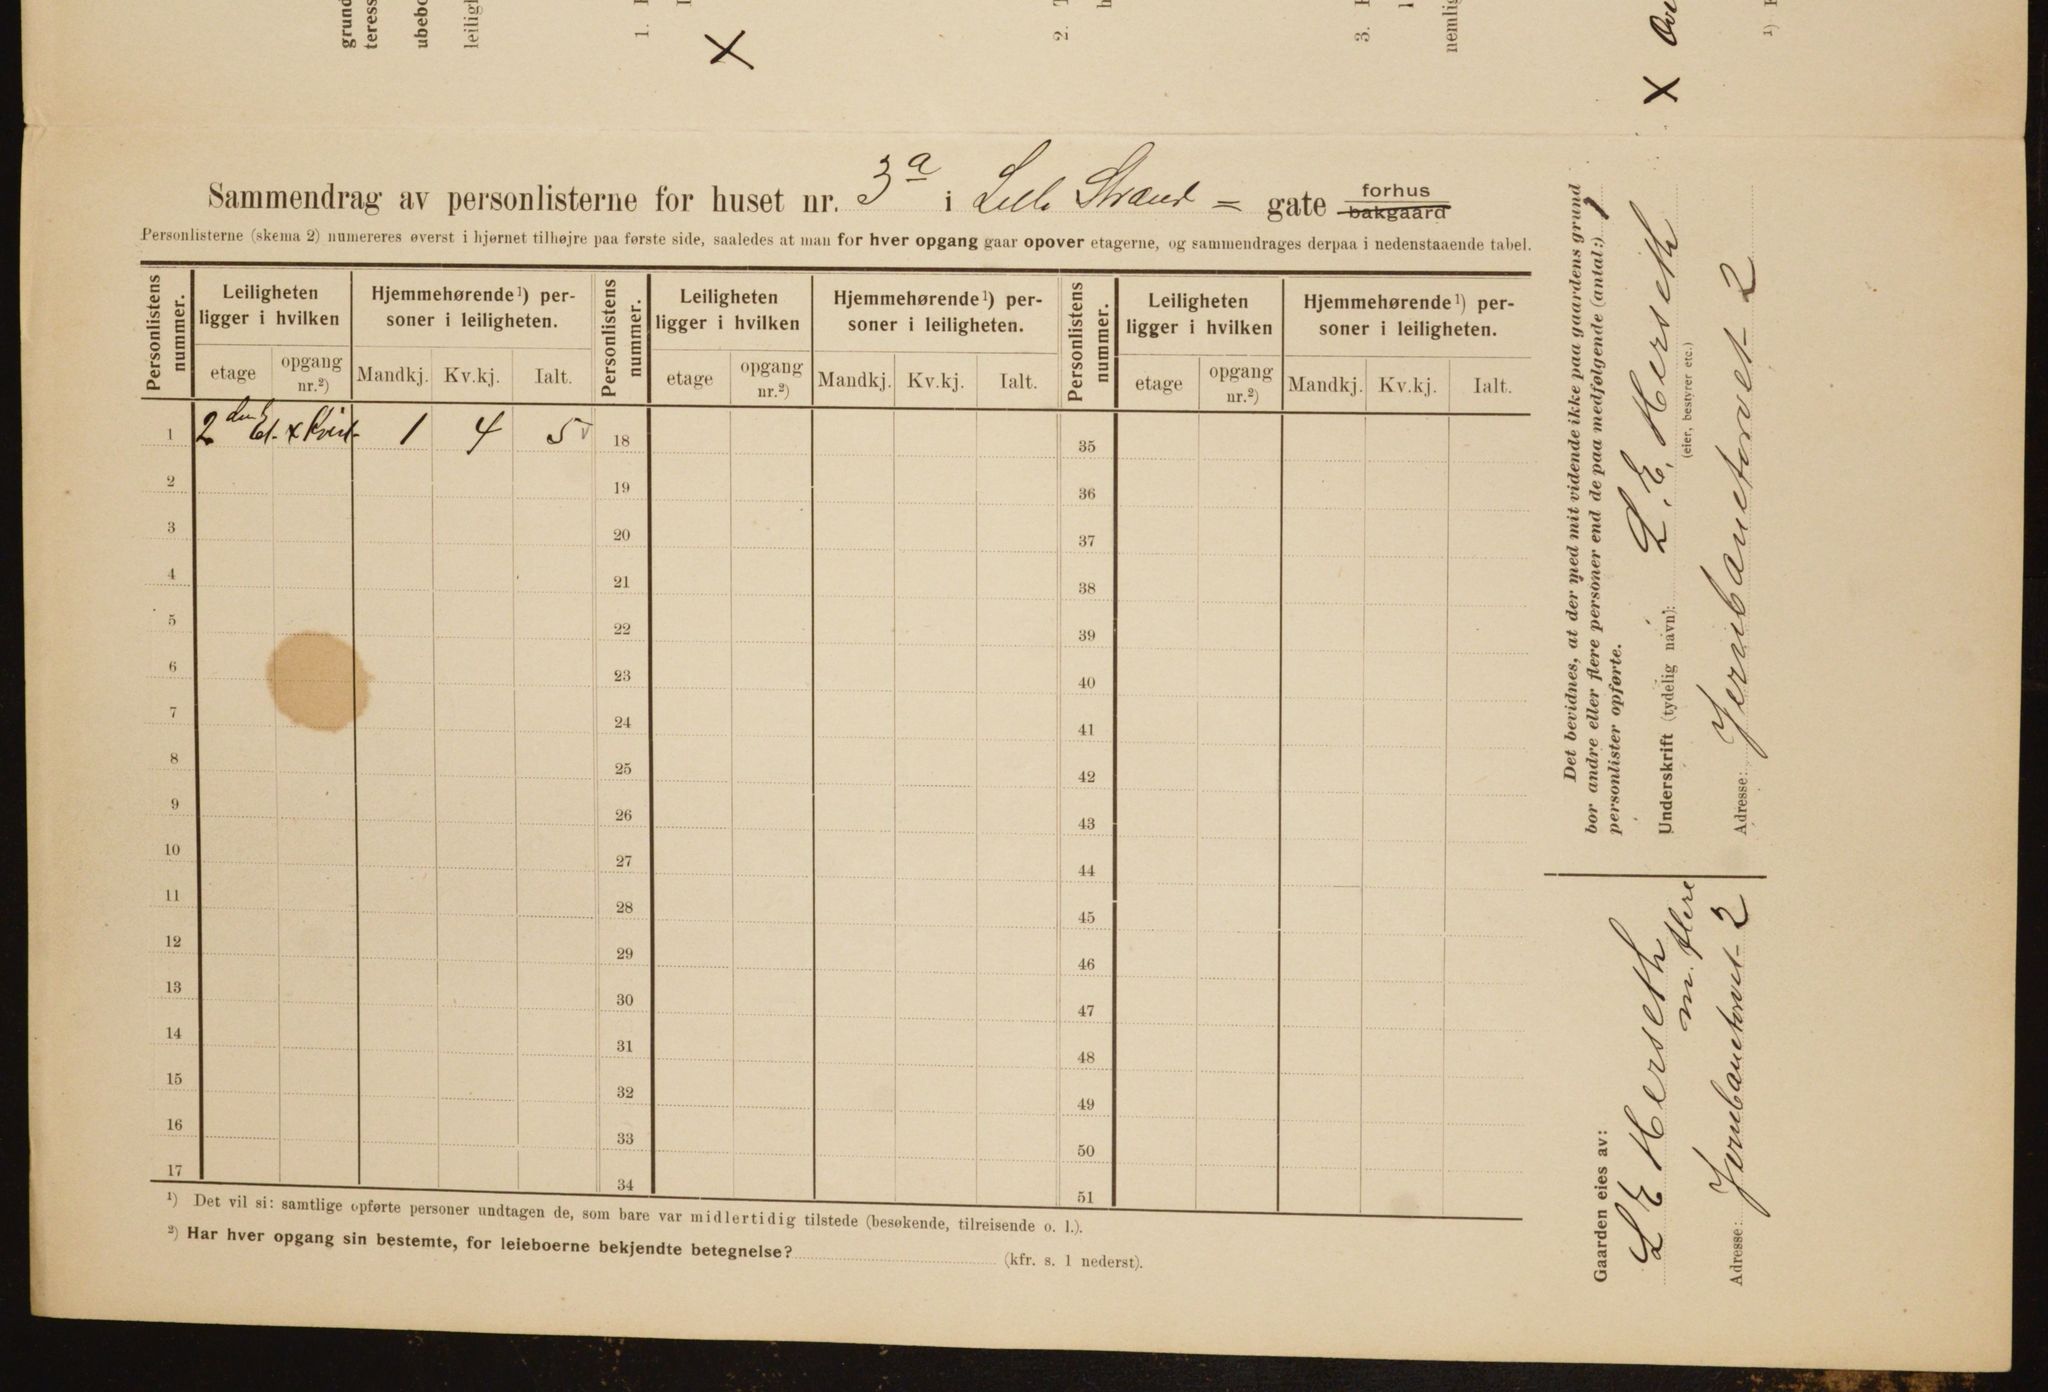 grund
teress
ubebo
leilig
1.
2.
3.
nemlig
1)
X
X Ove
Sammendrag av personlisterne for huset nr. 3 a i Lille Strand = gate forhus
bakgaard
Personlisterne (skema 2) numereres øverst i hjørnet tilhøjre paa første side, saaledes at man for hver opgang gaar opover etagerne, og sammendrages derpaa i nedenstaaende tabel.
Personlistens nummer. Leiligheten ligger i hvilken Hjemmehørende 1) personer i leiligheten. Personlistens nummer. Leiligheten ligger i hvilken Hjemmehørende 1) personer i leiligheten. Personlistens nummer. Leiligheten ligger i hvilken Hjemmehørende 1) personer i leiligheten.
etage opgang nr.2) Mandkj. Kv.kj. Ialt. etage opgang nr.2) Mandkj. Kv.kj. Ialt. etage opgang nr.2) Mandkj. Kv.kj. Ialt.
1 2 den Et. x Kvist 1 4 5 18 35
2 19 36
3 20 37
4 21 38
5 22 39
6 23 40
7 24 41
8 25 42
9 26 43
10 27 44
11 28 45
12 29 46
13 30 47
14 31 48
15 32 49
16 33 50
17 34 51
1) Det vil si: samtlige opførte personer undtagen de, som bare var midlertidig tilstede (besøkende, tilreisende o. l.).
2) Har hver opgang sin bestemte, for leieboerne bekjendte betegnelse? (kfr. s. 1 nederst).
Det bevidnes, at der med mit vidende ikke paa gaardens grund
bor andre eller flere personer end de paa medfølgende (antal:) 1
personlister opførte.
Underskrift (tydelig navn): L. E. Herseth
(eier, bestyrer etc.)
Adresse: Jernbanetorvet 2
Gaarden eies av:
L E Herseth
m. flere
Adresse: Jernbanetorvet 2